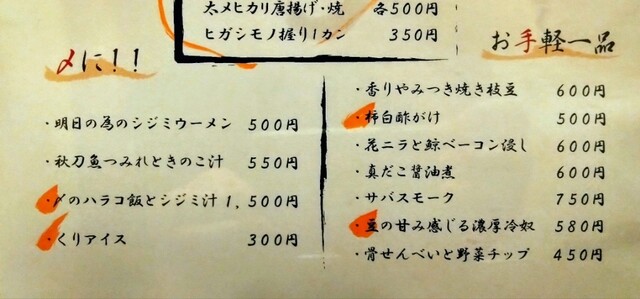 太メヒカリ唐揚げ・焼 各500円
ヒガシモノ握り1カン 350円
〆に!!
・明日の為のシジミウーメン 500円
・秋刀魚つみれときのこ汁 550円
・〆のハラコ飯とシジミ汁 1,500円
・くりアイス 300円
お手軽一品
・香りやみつき焼き枝豆 600円
・柿白酢がけ 500円
・花ニラと鯨ベーコン浸し 600円
・真だこ醤油煮 600円
・サバスモーク 750円
・豆の甘み感じる濃厚冷奴 580円
・骨せんべいと野菜チップ 450円